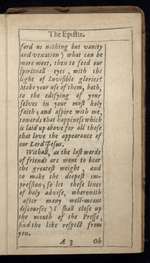 The Epistle.
ford us nothing but vanity
and vexation; what can be
more meet, then to feed our
spirituall eyes, with the
light of Invisible glories?
Make your use of them, both,
to the edifying of your
selves in your most holy
faith; and aspire with me,
towards that happiness which
is laid up above for all those
that love the appearance of
our Lord Jesus.
Withall, as the last words
of friends are wont to bear
the greatest weight, and
to make the deepest im-
pression; so let these lines
of holy advise, wherewith
after many well-meant
discourses, I shall close up
the mouth of the Presse,
find the like respect from
you.
A 3 Oh